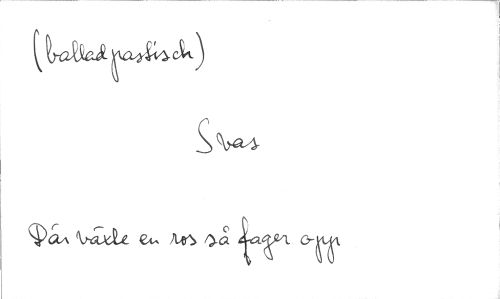 (balladpastisch)
Svas
Där växte en ros så fager opp